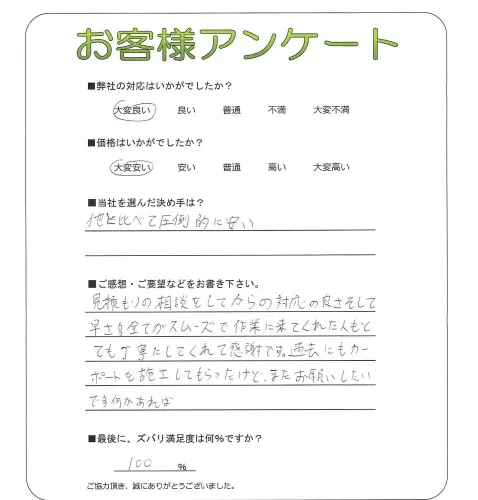 お客様アンケート
■弊社の対応はいかがでしたか？
大変良い 良い 普通 不満 大変不満
■価格はいかがでしたか？
大変安い 安い 普通 高い 大変高い
■当社を選んだ決め手は？
他と比べて圧倒的に安い
■ご感想・ご要望などをお書き下さい。
見積もりの相談をしてからの対応の良さそして
早さも全てがスムーズで作業に来てくれた人もと
ても丁寧にしてくれて感謝です。過去にもカー
ポートを施工してもらったけど、またお願いしたい
です何かあれば
■最後に、ズバリ満足度は何%ですか？
100 %
ご協力頂き、誠にありがとうございました。